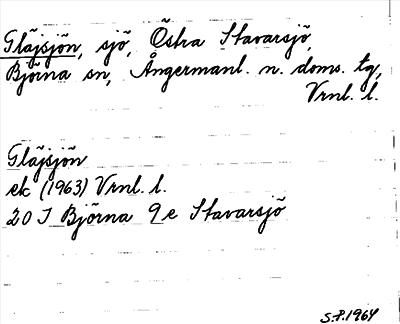 Gläjsjön, sjö, Östra Stavarsjö,
Björna sn, Ångermanl. n. doms. tg,
Vrnl. l.
Gläjsjön
ek (1963) Vrnl. l.
20 I Björna 9 e Stavarsjö
S.P. 1964